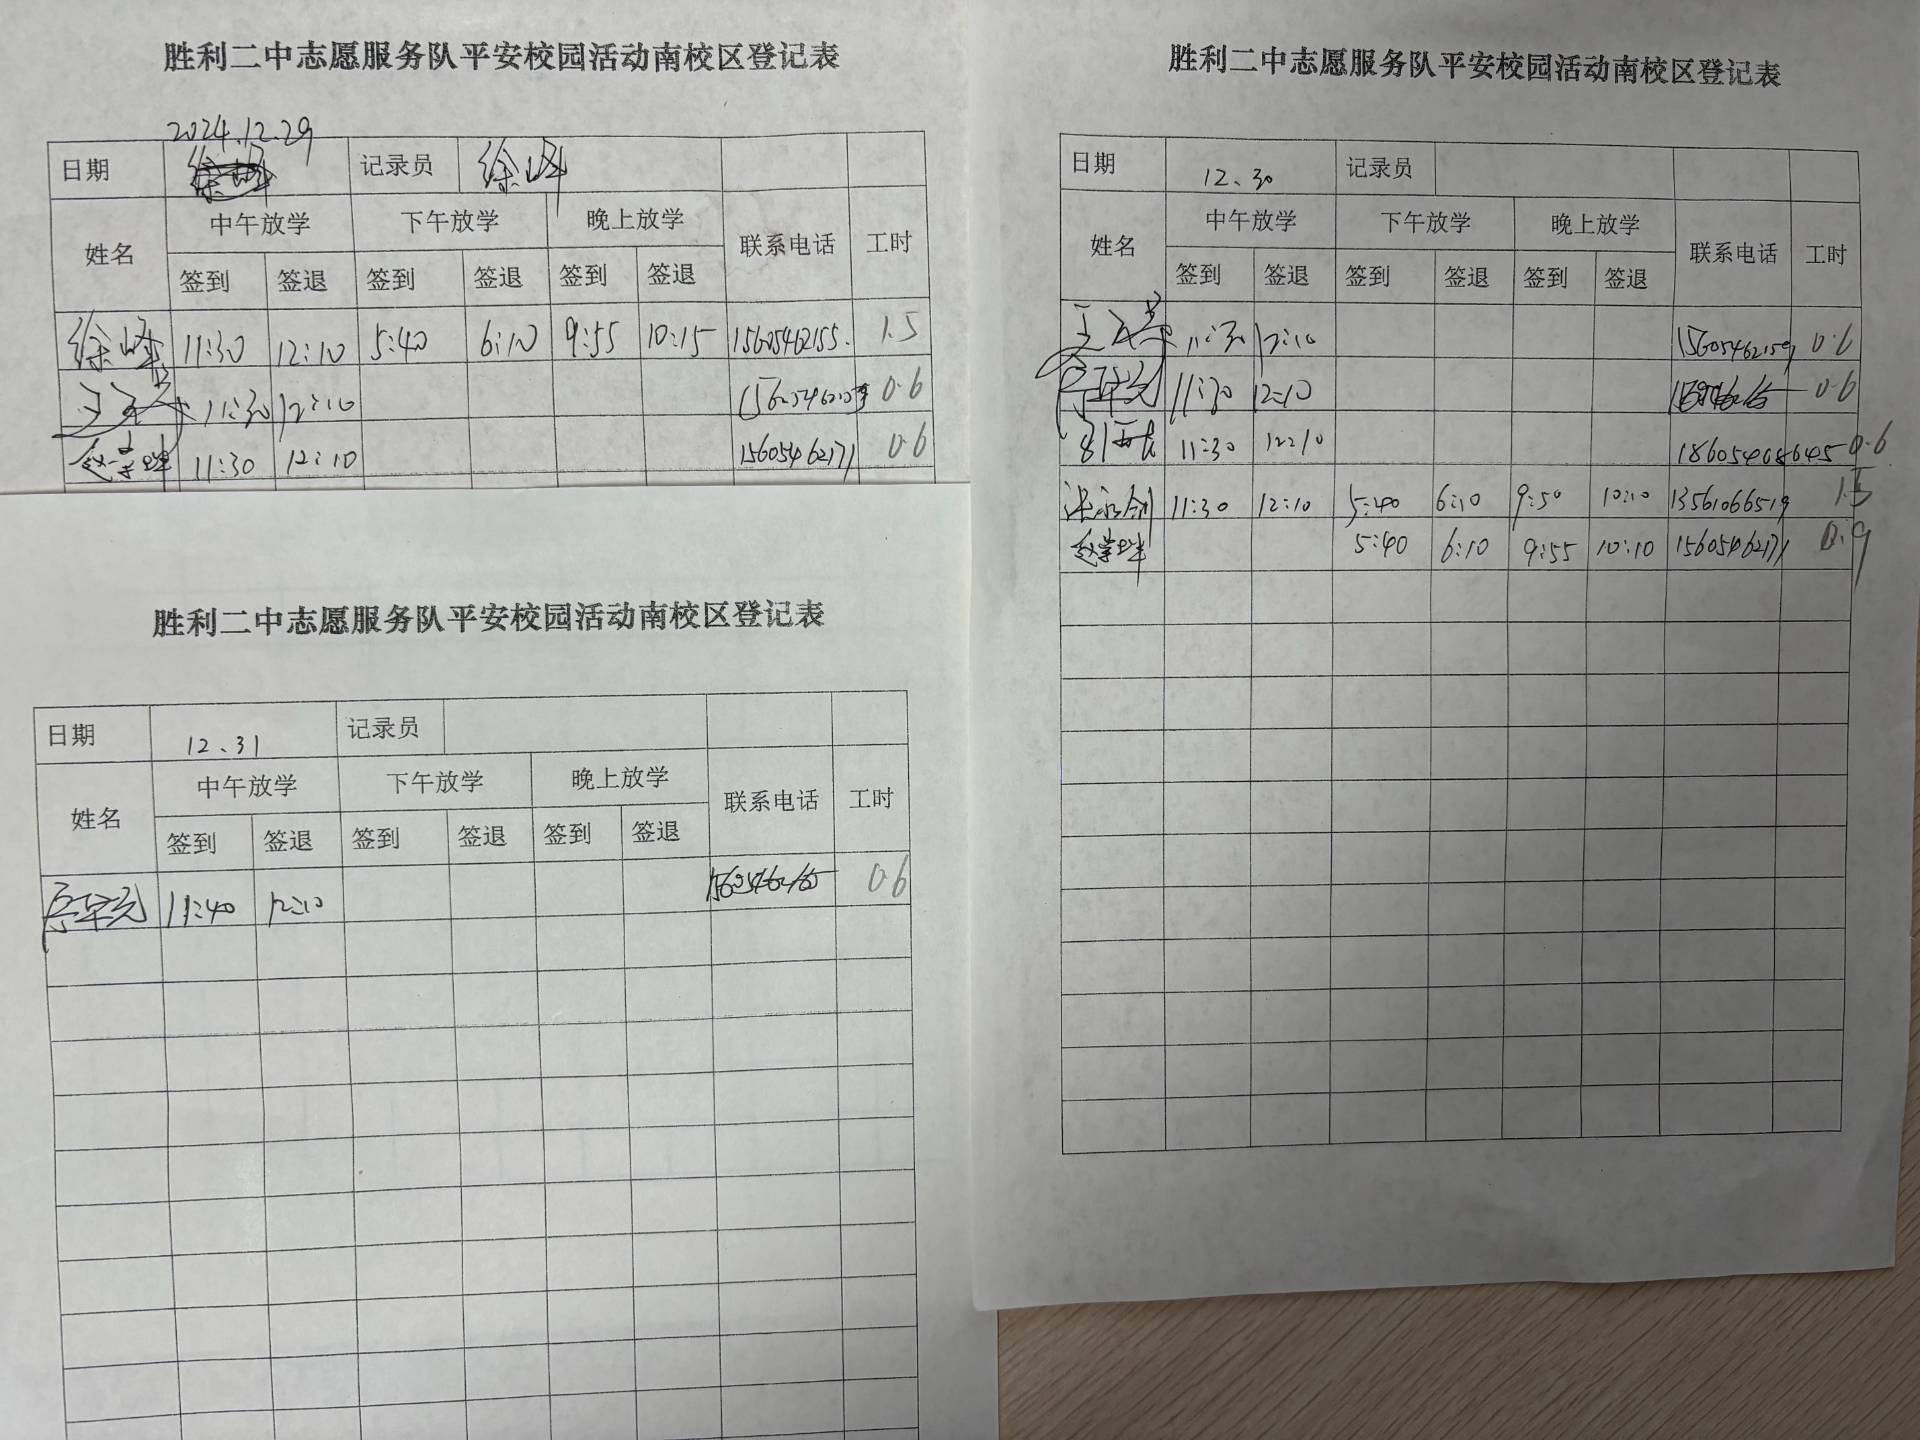 胜利二中志愿服务队平安校园活动南校区登记表
2024.12.29
日期 记录员 徐峰
姓名 中午放学 下午放学 晚上放学 联系电话 工时
签到 签退 签到 签退 签到 签退
徐峰 11:30 12:10 5:40 6:10 9:55 10:15 15605462155. 1.5
11:30 12:10 0.6
赵学峰 11:30 12:10 15605462171 0.6
胜利二中志愿服务队平安校园活动南校区登记表
日期 12、30 记录员
姓名 中午放学 下午放学 晚上放学 联系电话 工时
签到 签退 签到 签退 签到 签退
11:30 12:10 15605462159 0.6
11:30 12:10 0.6
11:30 12:10 18605468645 0.6
11:30 12:10 5:40 6:10 9:50 10:10 13561066519 1.5
赵学峰 5:40 6:10 9:55 10:10 15605462171 0.9
胜利二中志愿服务队平安校园活动南校区登记表
日期 12、31 记录员
姓名 中午放学 下午放学 晚上放学 联系电话 工时
签到 签退 签到 签退 签到 签退
11:40 12:10 0.6